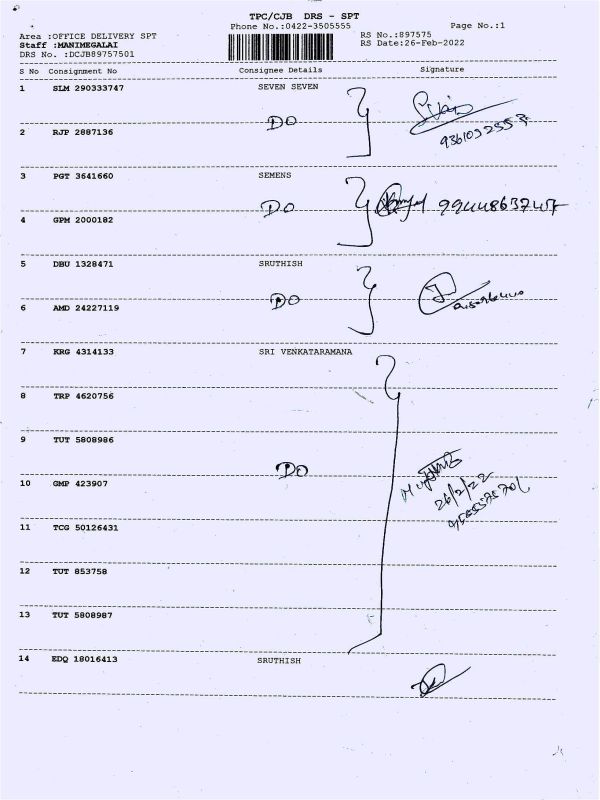 TPC/CJB DRS - SPT
Phone No.:0422-3505555 Page No.:1
Area :OFFICE DELIVERY SPT RS No.:897575
Staff :MANIMEGALAI RS Date:26-Feb-2022
DRS No. :DCJB89757501
S No Consignment No Consignee Details Signature
1 SLM 290333747 SEVEN SEVEN
DO
2 RJP 2887136
3 PGT 3641660 SEMENS
DO
4 GPM 2000182
5 DBU 1328471 SRUTHISH
DO
6 AMD 24227119
7 KRG 4314133 SRI VENKATARAMANA
8 TRP 4620756
9 TUT 5808986
DO
10 GMP 423907
26/2/22
11 TCG 50126431
12 TUT 853758
13 TUT 5808987
14 EDQ 18016413 SRUTHISH